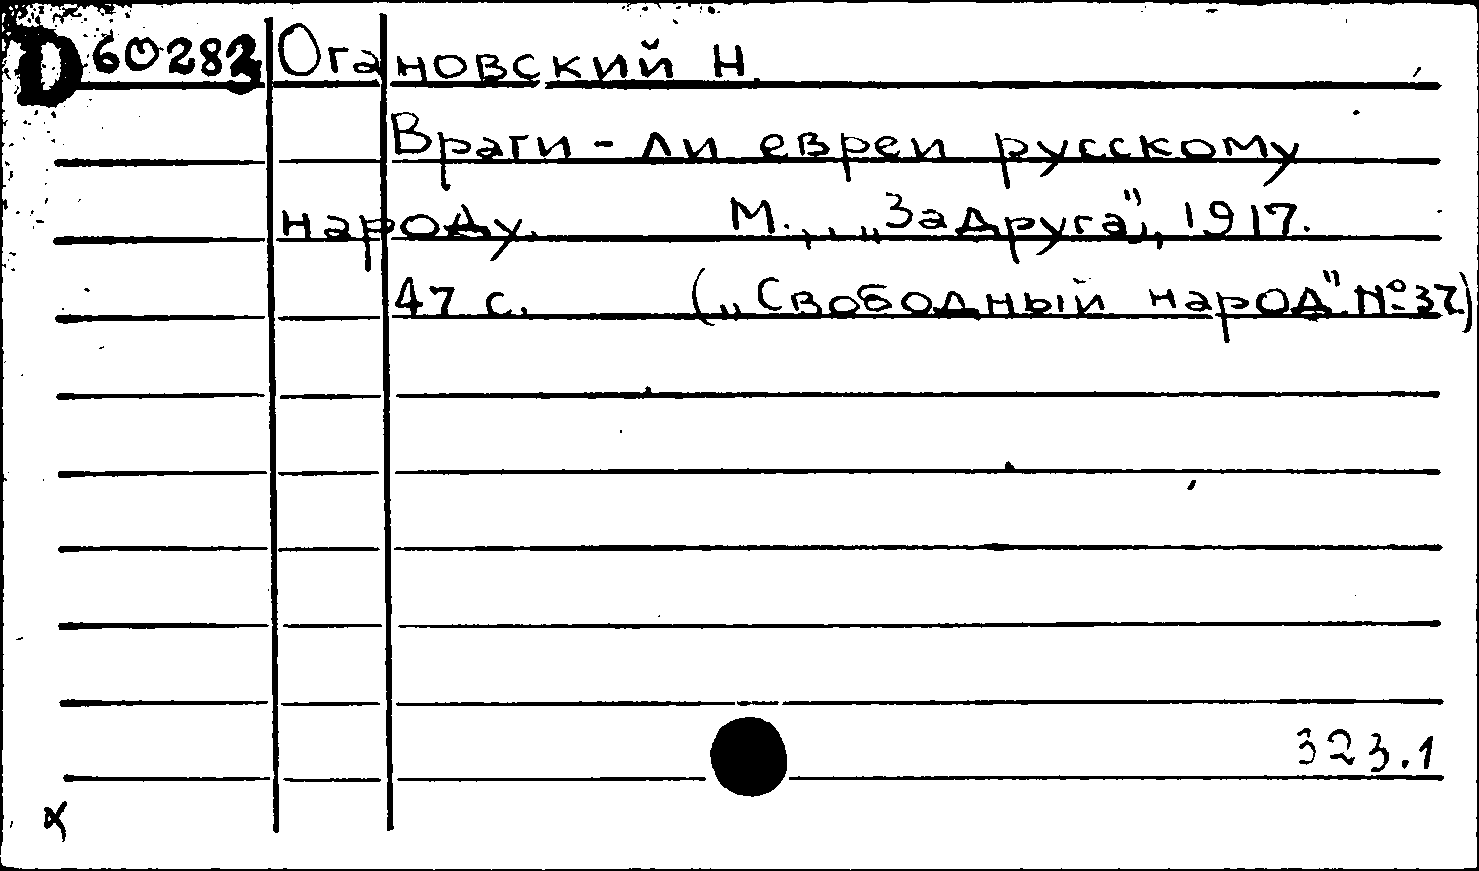 D 60282 Огановский Н.
Враги - ли евреи русскому
народу. М., „Задруга", 1917.
47 с. („Свободный народ". № 37)
323.1